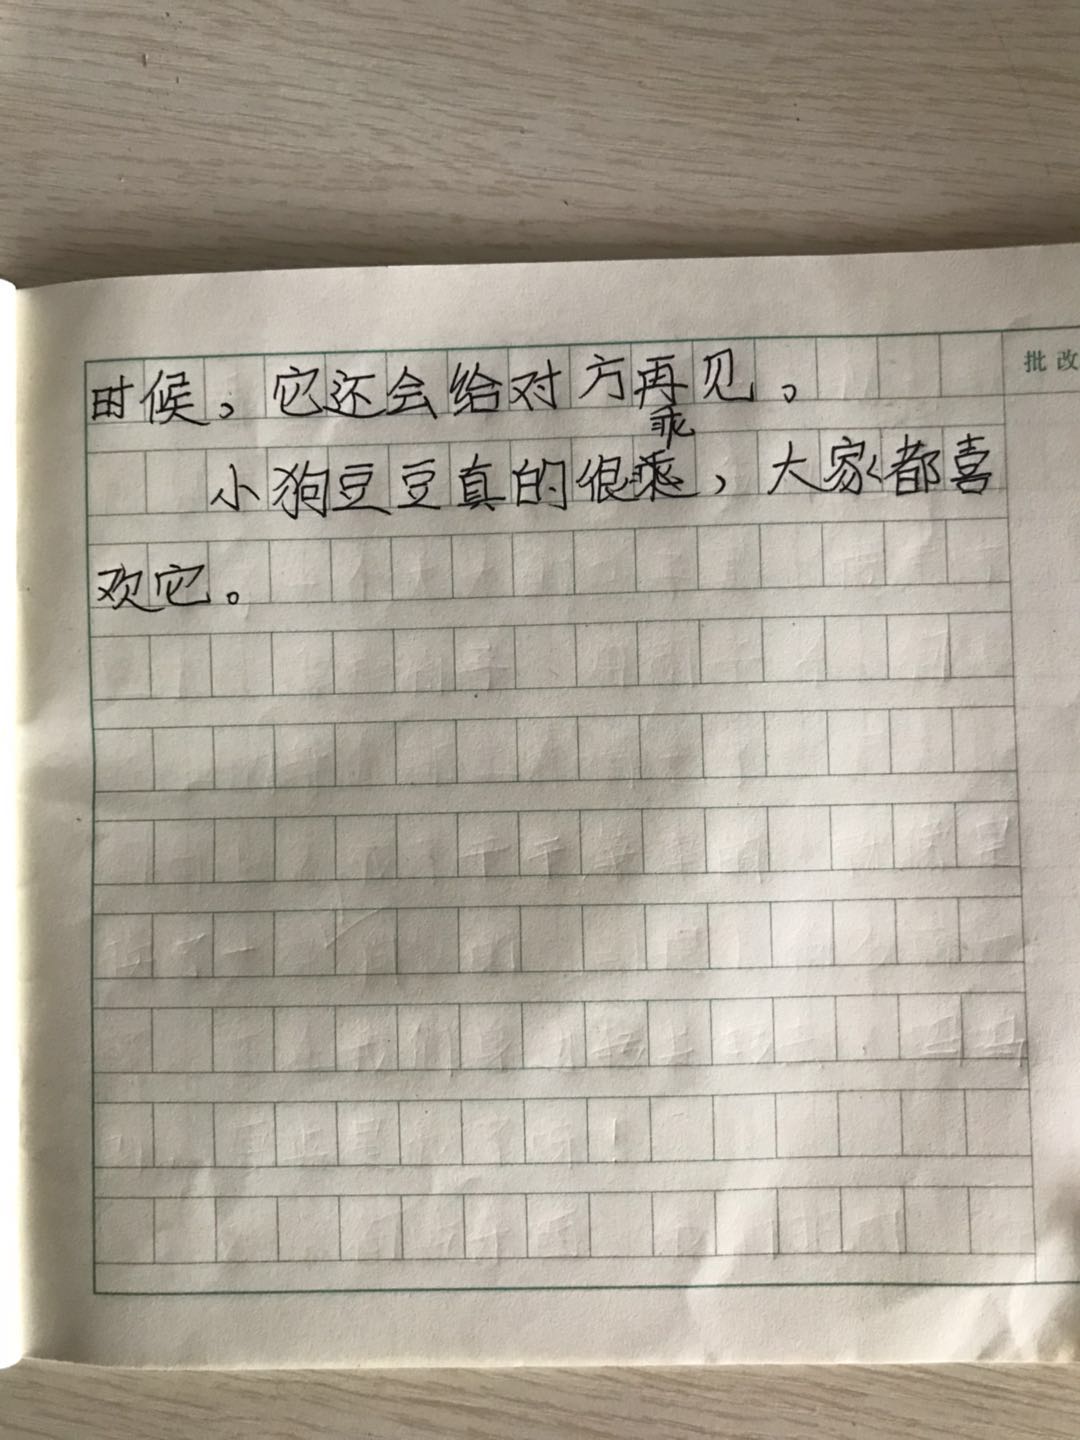 批改
时候，它还会给对方再见。
乖
小狗豆豆真的很乘，大家都喜
欢它。